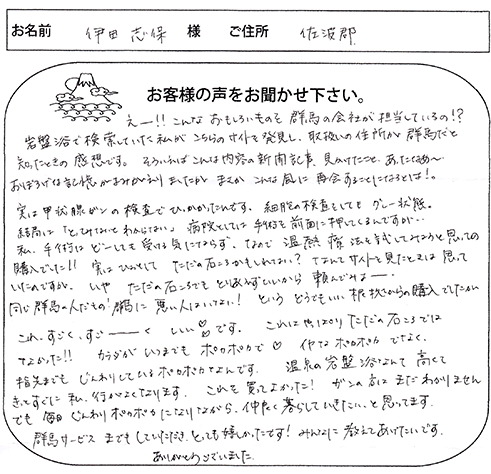 お名前 伊田 志保 様 ご住所 佐波郡
お客様の声をお聞かせ下さい。
えー!! こんなおもしろいものを 群馬の会社が担当しているの!?
岩盤浴で検索していた私がこちらのサイトを発見し、取扱いの住所が群馬だと
知ったときの感想です。そういえばこんな内容の新聞記事、見かけたこと、あったなぁ〜
おぼろげな記憶がよみがえりましたが まさか こんな風に再会することになるとは!。
実は甲状腺ガンの検査でひっかかったんです。細胞の検査をしても グレー状態。
結局は「とってみないとわからない」病院としては手術を前面に押してくるんですが‥
私、手術はどーしても受ける気にならず、なので 温熱療法を試してみようと思っての
購入でした!! 実はひょっとして ただの石ころかもしれない? なんてサイトを見たときは思って
いたのですが、いや ただの石ころでも とりあえずいいから 頼んでみよー
同じ群馬の人だもの! 群馬に悪い人はいない! という どうでもいい根拠からの購入でしたが
これ、すごく、すごーーく いいです。これはやっぱり ただの石ころでは
なかった!! カラダがいつまでも ポカポカで イヤなポカポカ でなく、
指先までも じんわりしているポカポカなんです。温泉の岩盤浴なんて 高くて
きってすでに私、行かなくなります。これを買ってよかった! ガンの方は まだわかりません
でも 毎日 じんわりポカポカになりながら、仲良く暮らしていきたい、と思ってます。
群馬サービス までもしていただき とっても嬉しかったです! みんなに教えてあげたいです。
ありがとうございました。